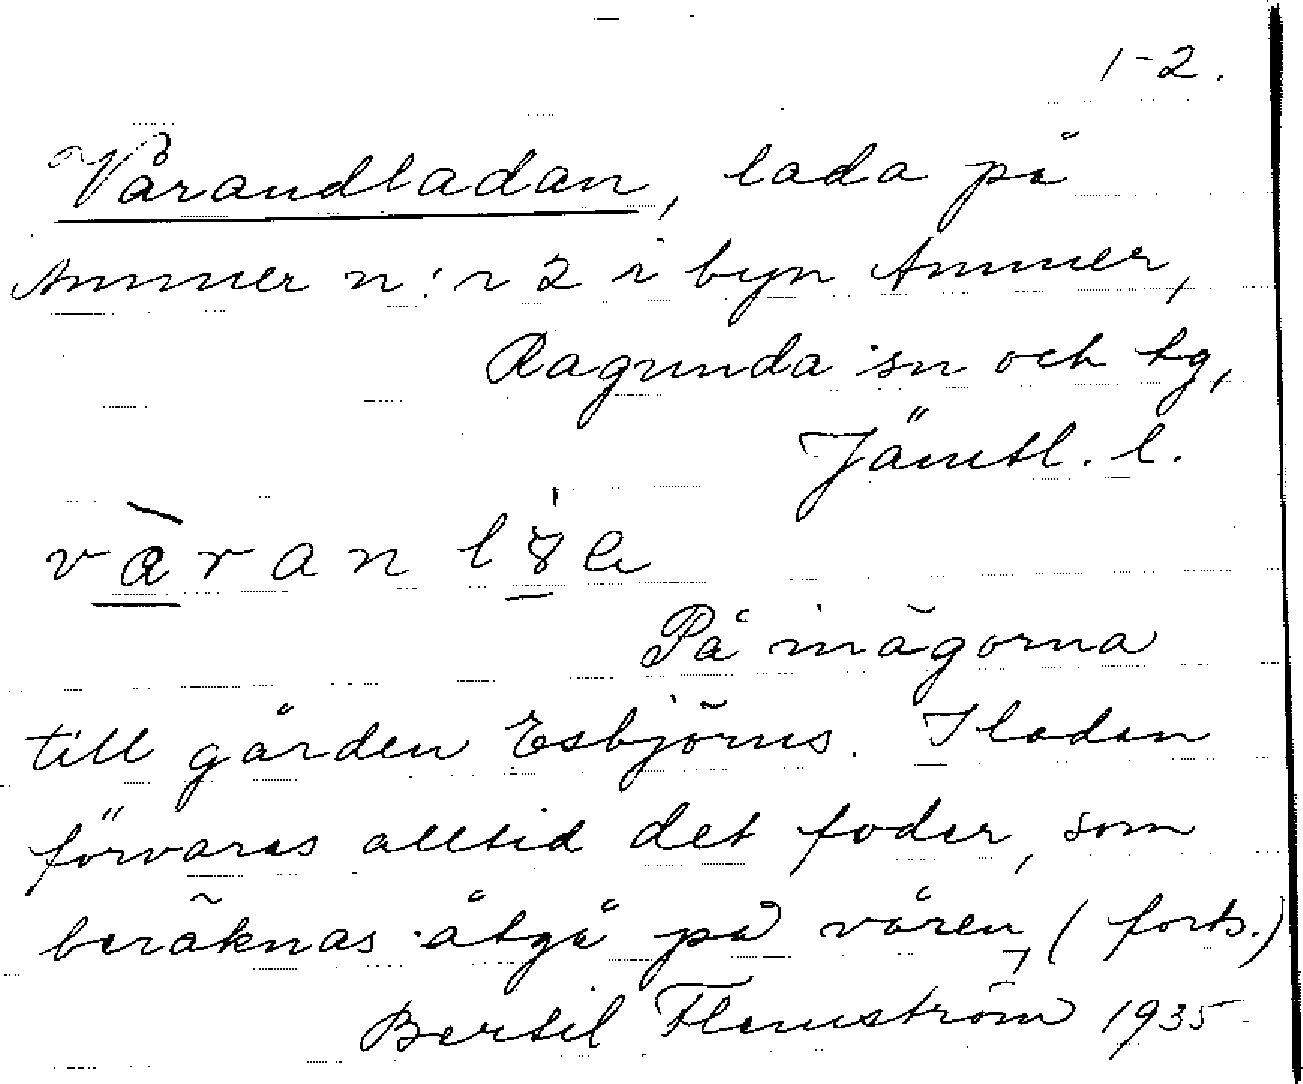 1-2.
Vårandladan, lada på
Ammer n:r 2 i byn Ammer,
Ragunda sn och tg,
Jämtl. l.
På inägorna
till gården Esbjörns. I ladan
förvaras alltid det foder, som
beräknas åtgå på våren, (forts.)
Bertil Flemström 1935